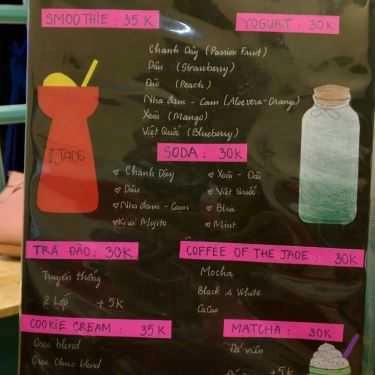 SMOOTHIE : 35 K
YOGURT : 30K
Chanh Dây (Passion Fruit)
Dâu (Strawberry)
Đào (Peach)
Nha đam - Cam (Aloevera - Orange)
Xoài (Mango)
Việt Quất (Blueberry)
JADE
SODA : 30K
Chanh Dây
Dâu
Nha đam - Cam
Kiwi Mojito
Xoài - Dâu
Việt Quất
Blue
Mint
TRÀ ĐÀO : 30K
Truyền thống
2 Lớp + 5K
COFFEE OF THE JADE : 30K
Mocha
Black & White
CaCao
COOKIE CREAM : 35 K
Oreo blend
Oreo Choco blend
MATCHA : 30K
Đá viên
+ 5K